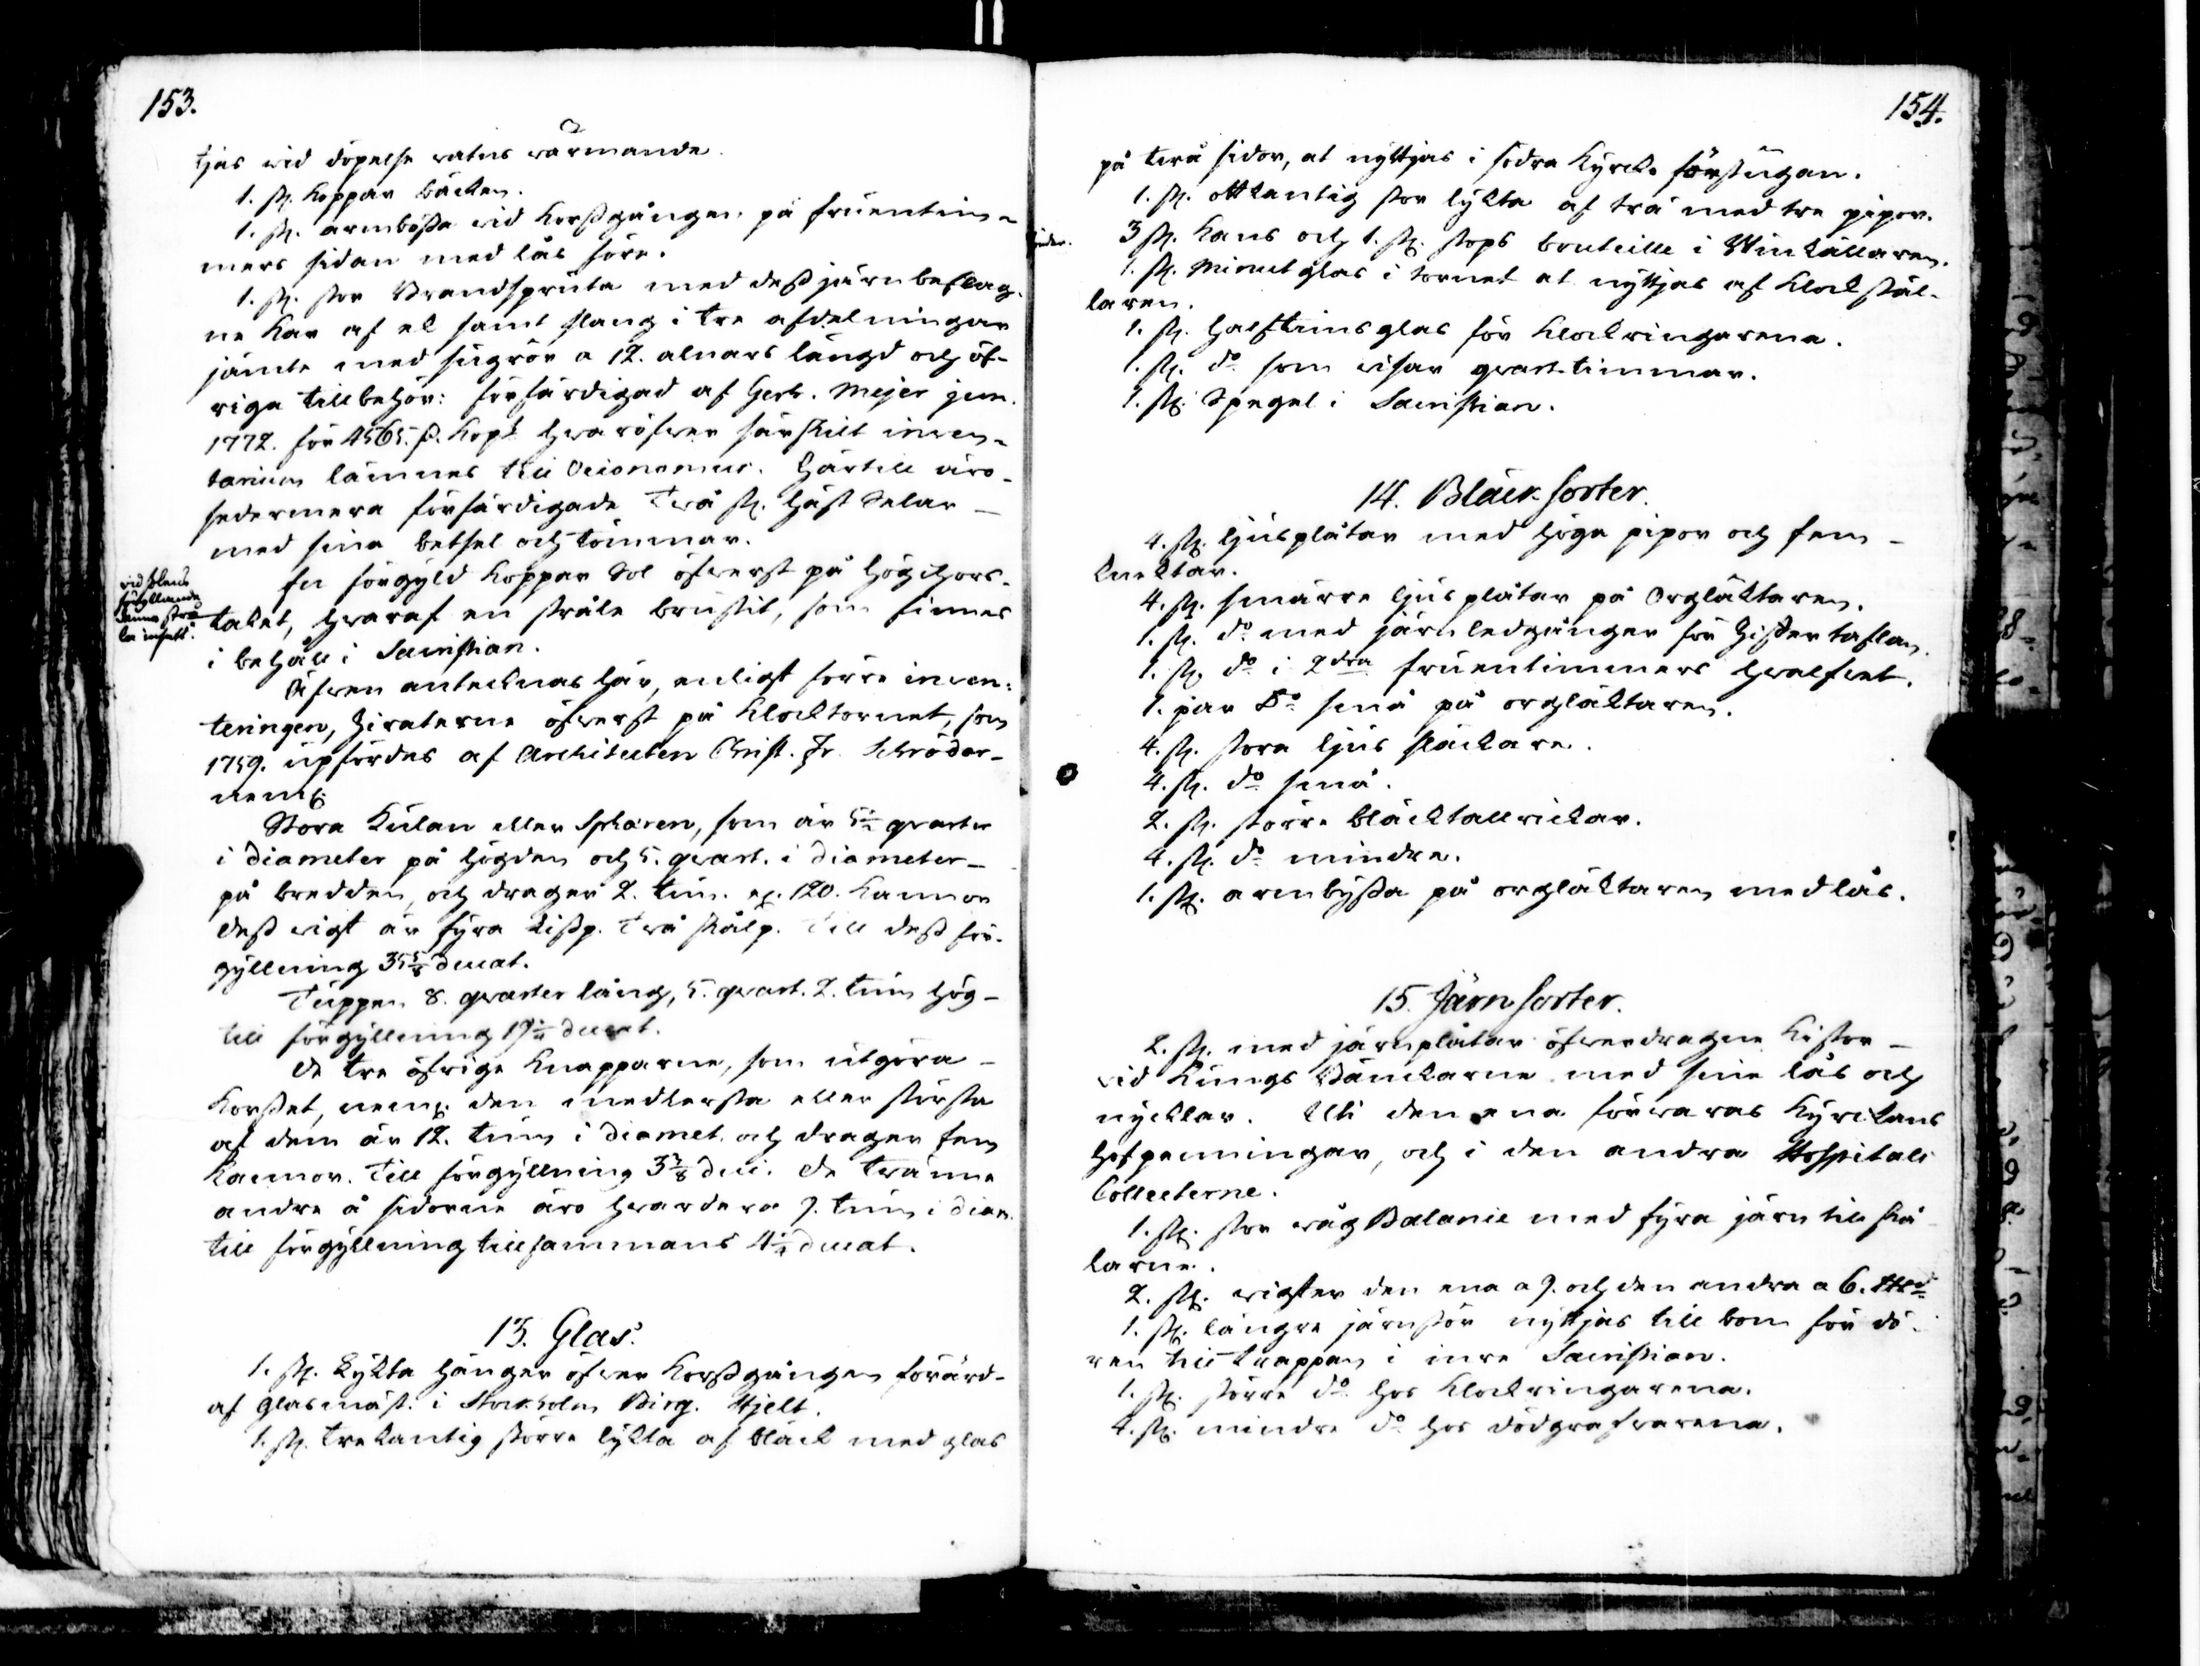 153.
tjas wid döpelse watns wärmande.
1. st. koppar bäcken.
1. st. armbössa wid Korssgången på fruentim-
mers sidan med lås före.
1. st. stor Brandspruta med dess järnbeslag-
ne Kar af ek samt slang i tre afdelningar
jämte med sugrör a 12. alnars längd och öf-
riga tillbehör: förfärdigad af Gerh. Mejer jun.
1772. för 4565. d. Kopt hwaröfwer särskilt inwen-
tarium lämnes till Oeconomus. Härtill äro
sedermera förfärdigade Twå st. häst Selar
med sina betsel och tömmar.
En förgyld koppar Sol öfwerst på högchors-
taket, hwaraf en stråle brustit, som finnes
i behåll i Sacristian.
wid
förgyllande
denna strå-
le insatt.
Äfwen antecknas här, enligt förre inwen-
teringen, Ziraterne öfwerst på Klocktornet, som
1759. upfördes af Architecten Christ. Fr. Schröder-
neml.
Stora Kulan eller Sphæren, som är 5½ qvarter
i diameter på högden och 5. qvart. i diameter
på bredden, och drager 2. tun. eg. 120. Kannor
dess wigt är fyra Lissp. Twå skålp. Till dess för-
gyllning 35⅝ ducat.
Tuppen 8. qvarter lång, 5. qvart. 2. tum hög
till förgyllning 19½ ducat.
De tre öfrige Knapparne, som utgöra
Korsset, neml. den medlersta eller största
af dem är 12. tum i diamet. och drager fem
Kannor. Till förgyllning 3⅞ duc. De twänne
andre å sidorne äro hwardera 9. tum i diam.
till förgyllning tillsammans 4½ ducat.
13. Glas.
1. st. Lykta hänger öfwer Korssgången förärd-
af Glasmäst. i Stockholm Birg. Hjelt.
1. st. trekantig större lykta af bläck med glas
154.
på twå sidor, at nyttjas i södra Kyrck. förstugan.
1. st. ottkantig stor lykta af trä med tre pipor.
3 st. Kans och 1. st. stops bouteille i Winkällaren.
1. st. Minutglas i tornet at nyttjas af Klockstäl-
laren.
1. st. halftimsglas för Klockringarena.
1. st. do som wisar qvart-timmar.
1. st. Spegel i Sacristian.
14. Bläcksorter.
4. st. ljusplåtar med höga pipor och fem
knektar.
4. st. smärre ljusplåtar på Orgläktaren.
1. st. do med järnledgånger för Ziffertaflan.
1. st. do i 2dra fruentimmers hwalfwet.
1. par Do små på orgläktaren.
4. st. stora ljus släckare.
4. st. do små.
2. st. större bläcktallrickar.
4. st. do mindre.
1. st. armbyssa på orgläktaren med lås.
15. Järnsorter.
2. st. med järnplåtar öfwerdragne Kistor
wid Kungs Bänckarne med sine lås och
nycklar. Uti den ena förwaras Kyrckans
hofpenningar, och i den andra Hospitals
Collecterne.
1. st. stor wåg Balance med fyra järn till skå
larne.
2. st. wigter den ena a 9. och den andra a 6.
1. st. längre järnstör nyttjas till bom för dö-
ren till trappan i inre Sacristian.
1. st. större do hos Klockringarena.
4. st. mindre do hos dödgrafwarena.